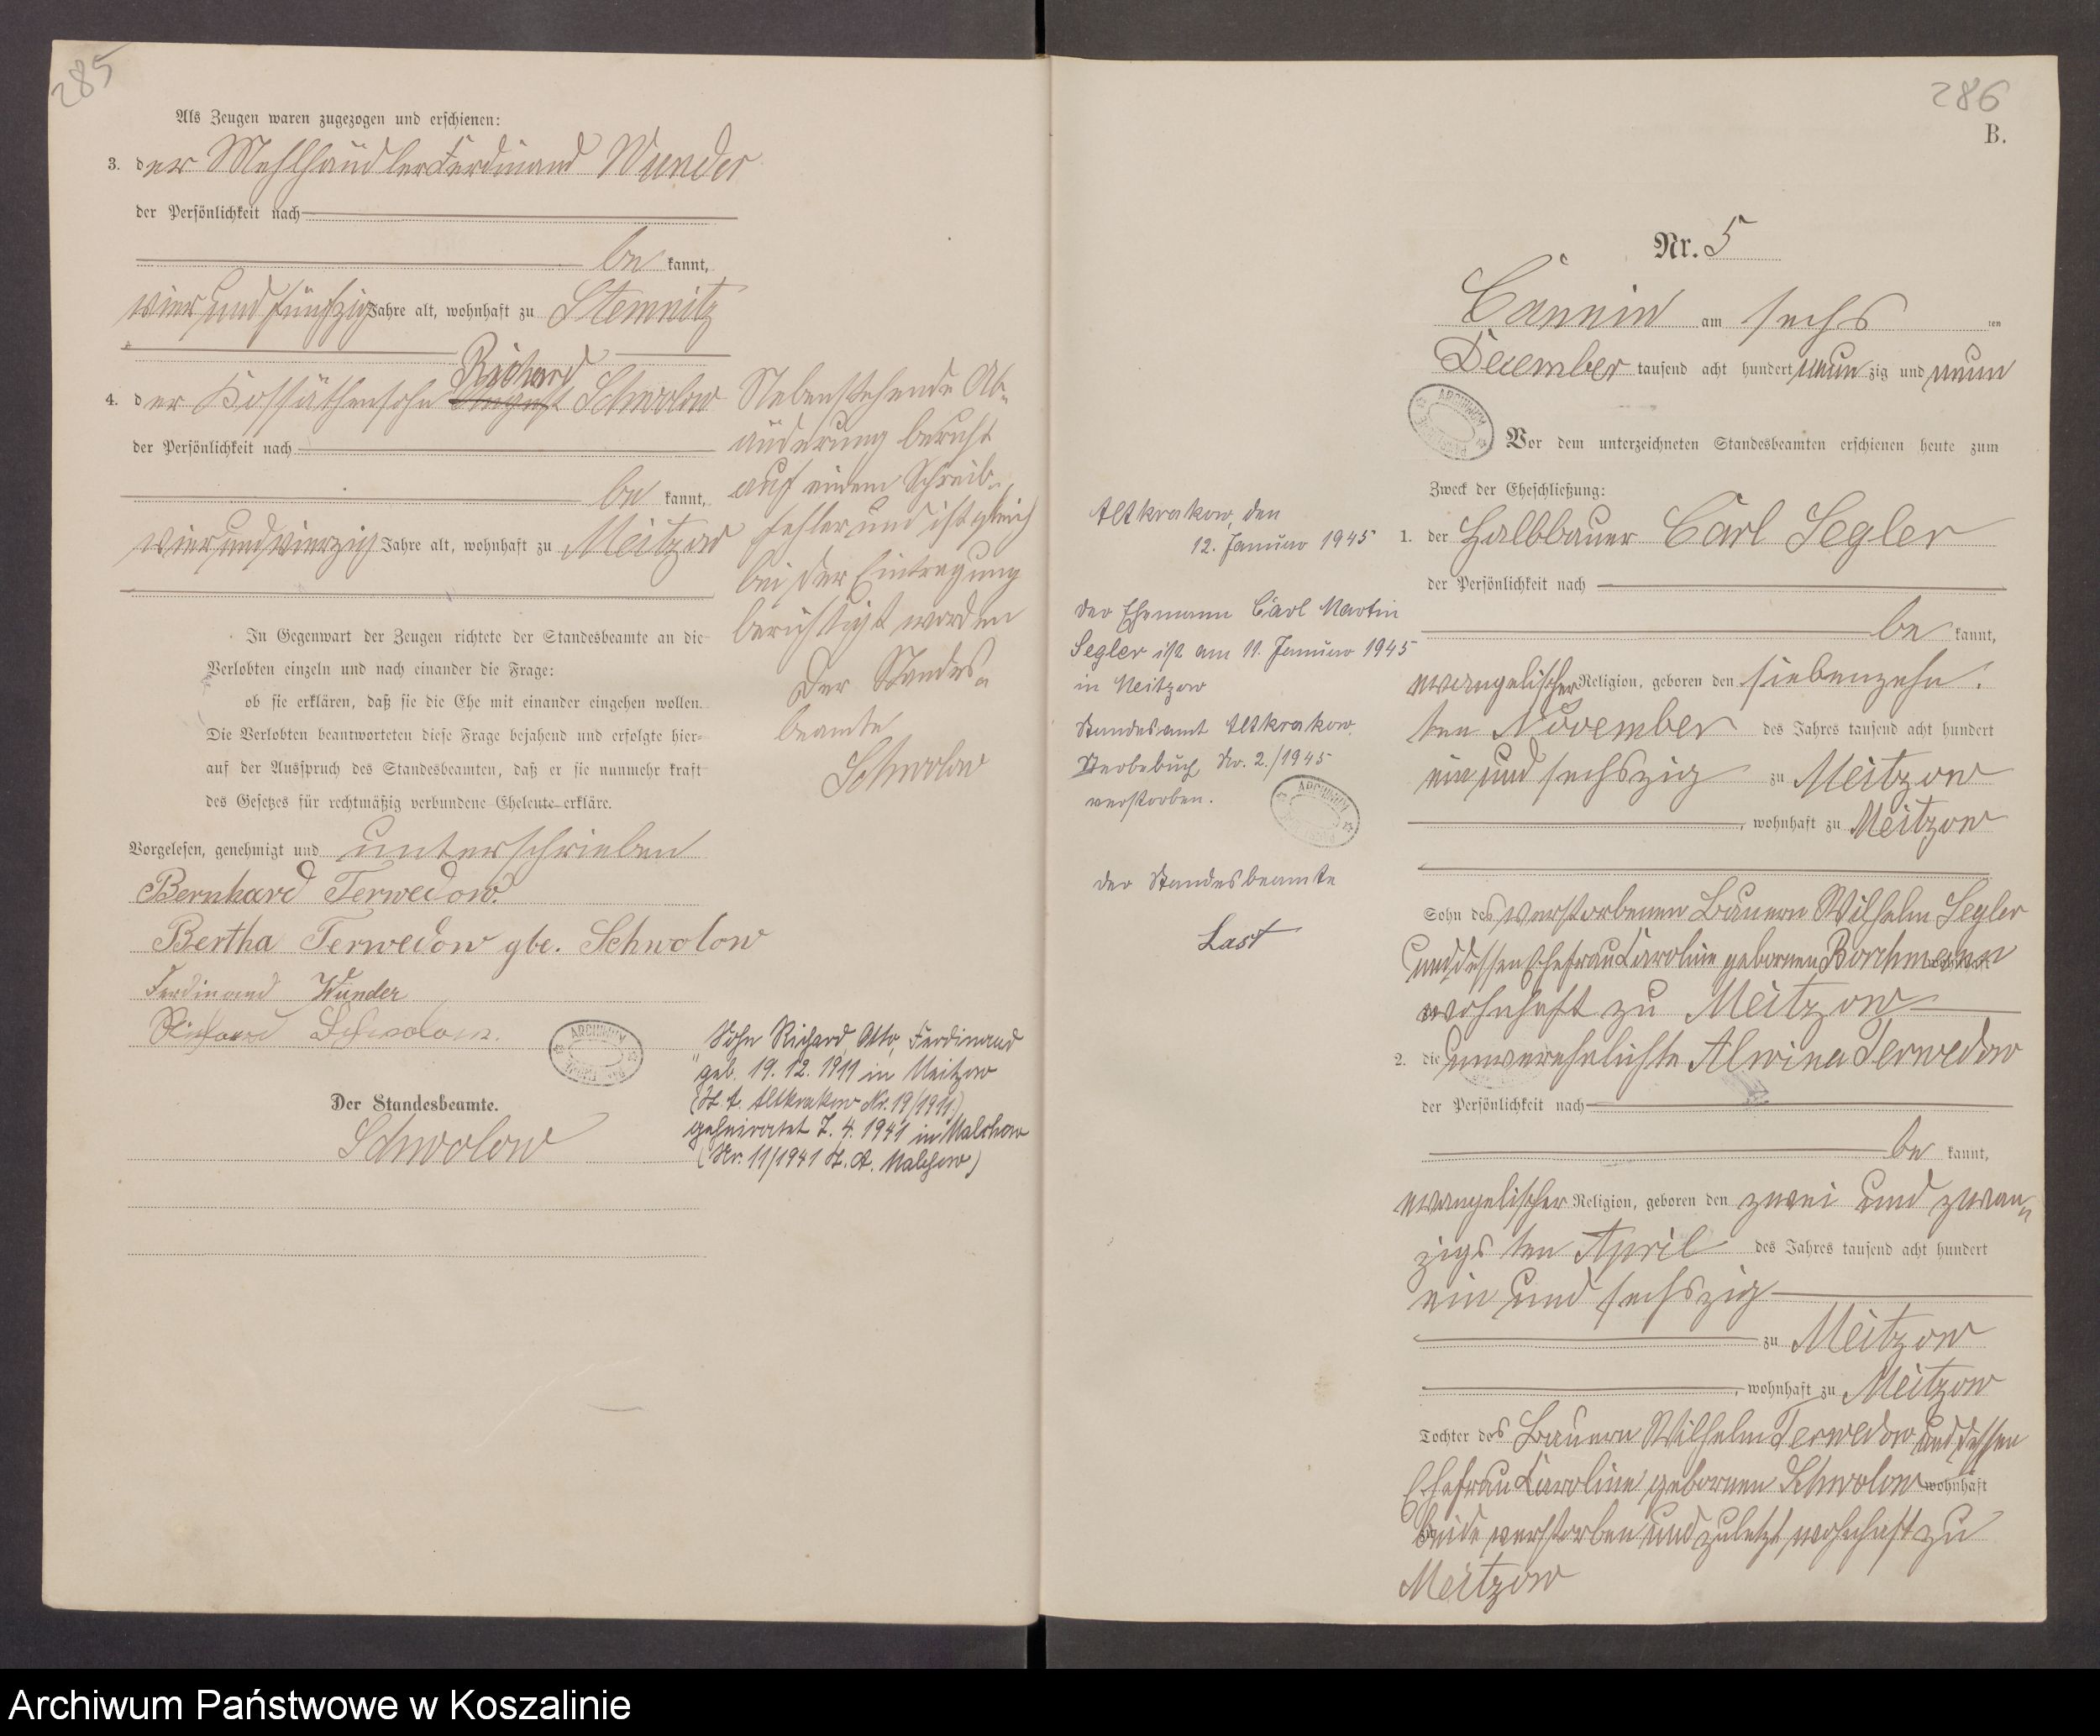 285
Als Zeugen waren zugezogen und erschienen:
3. der Mehlhändler Ferdinand Wunder
der Persönlichkeit nach
be kannt,
vier und fünfzig Jahre alt, wohnhaft zu Stemnitz
Richard
4. der Kossäthensohn August Schwolow
der Persönlichkeit nach
be kannt,
vier und vierzig Jahre alt, wohnhaft zu Meitzow
In Gegenwart der Zeugen richtete der Standesbeamte an die
Verlobten einzeln und nach einander die Frage:
ob sie erklären, daß sie die Ehe mit einander eingehen wollen.
Die Verlobten beantworteten diese Frage bejahend und erfolgte hier-
auf der Ausspruch des Standesbeamten, daß er sie nunmehr kraft
des Gesetzes für rechtmäßig verbundene Eheleute erkläre.
Vorgelesen, genehmigt und unterschrieben
Bernhard Terwedow.
Bertha Terwedow gbe. Schwolow
Ferdinand Wunder
Richard Schwolow.
Der Standesbeamte.
Schwolow
Nebenstehende Ab-
änderung beruht
auf einem Schreib-
fehler und ist gleich
bei der Eintragung
berichtigt worden
Der Standes-
beamte
Schwolow
ARCHIWUM
Sohn Richard, Otto, Ferdinand
geb. 19. 12. 1911 in Meitzow
(St. A. Altkrakow Nr. 19/1911)
geheiratet 7. 4. 1941 in Malchow
(Nr. 11/1941 St. A. Malchow)
286
B.
Nr. 5
Cannin am sechs ten
December tausend acht hundert neun zig und neun
ARCHIWUM
Vor dem unterzeichneten Standesbeamten erschienen heute zum
Zweck der Eheschließung:
1. der Halbbauer Carl Segler
der Persönlichkeit nach
be kannt,
evangelischer Religion, geboren den siebenzehn
ten November des Jahres tausend acht hundert
ein und sechszig zu Meitzow
, wohnhaft zu Meitzow
Sohn des verstorbenen Bauern Wilhelm Segler
und dessen Ehefrau Caroline gebornen Borchmann
wohnhaft zu Meitzow
2. die unverehelichte Alwina Terwedow
der Persönlichkeit nach
be kannt,
evangelischer Religion, geboren den zwei und zwan-
zigs ten April des Jahres tausend acht hundert
ein und sechszig
zu Meitzow
, wohnhaft zu Meitzow
Tochter des Bauern Wilhelm Terwedow und dessen
Ehefrau Caroline gebornen Schwolow wohnhaft
zu beide verstorben und zuletzt wohnhaft zu
Meitzow
Altkrakow, den
12. Januar 1945
Der Ehemann Carl Martin
Segler ist am 11. Januar 1945
in Meitzow
Standesamt Altkrakow,
Sterbebuch Nr. 2./1945
verstorben.
ARCHIWUM
Der Standesbeamte
Last
Archiwum Państwowe w Koszalinie